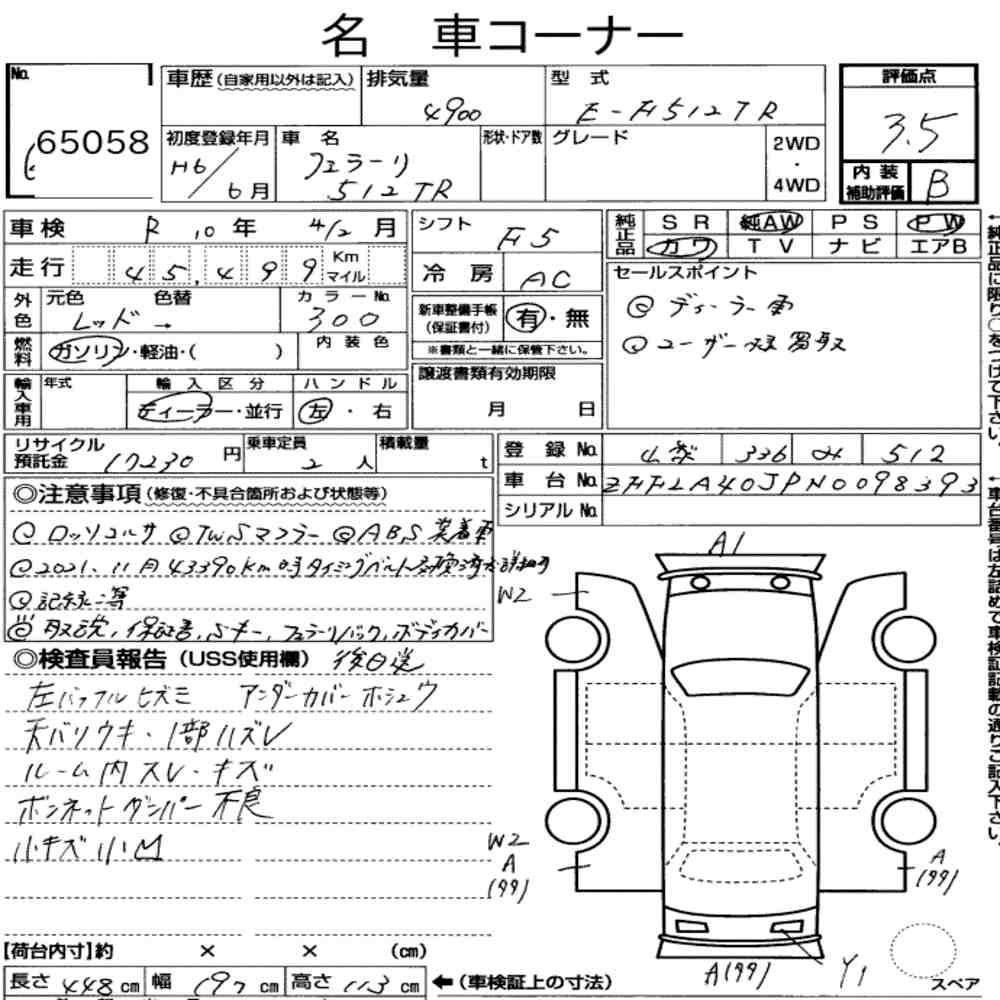 名 車コーナー
No. 65058
車歴 (自家用以外は記入) 排気量 4900 型式 E-FH512TR
評価点 3.5
初度登録年月 H6/6月 車名 フェラーリ 512TR 形状・ドア数 グレード 2WD・4WD
内装補助評価 B
車検 R10年 4/2月
走行 45,499 Km マイル
外色 元色 レッド 色替 → カラーNo. 300
燃料 ガソリン・軽油・( ) 内装色
輸入車用 年式 輸入区分 ディーラー・並行 ハンドル 左・右
シフト F5
冷房 AC
新車整備手帳(保証書付) 有・無
※書類と一緒に保管下さい。
譲渡書類有効期限
月 日
純正品 SR 純AW PS PW
カワ TV ナビ エアB
セールスポイント
◎ディーラー車
◎ユーザー様買取
←純正品に限り○をつけて下さい。
リサイクル預託金 17230円 乗車定員 2人 積載量 t
登録No. 山梨 336 み 512
車台No. ZFFLA40JPN0098393
シリアルNo.
←車台番号は左詰めで車検証記載の通りご記入下さい。
◎注意事項 (修復・不具合箇所および状態等)
◎ロッソコルサ ◎TWSマフラー ◎ABS装着車
◎2021.11月 43390km時タイミングベルト交換済み
◎記録簿
取説, 保証書, Sキー, フェラーリバック, ボディカバー
◎検査員報告 (USS使用欄) 後日送
左バッフルヒズミ アンダーカバーホシュウ
天バリウキ・1部ハズレ
ルーム内スレ・キズ
ボンネットダンパー不良
小キズ小凹
A1
W2
W2
A
(99)
A
(99)
A(99)
Y1
スペア
【荷台内寸】約 × × (cm)
長さ 448cm 幅 197cm 高さ 113cm ←(車検証上の寸法)